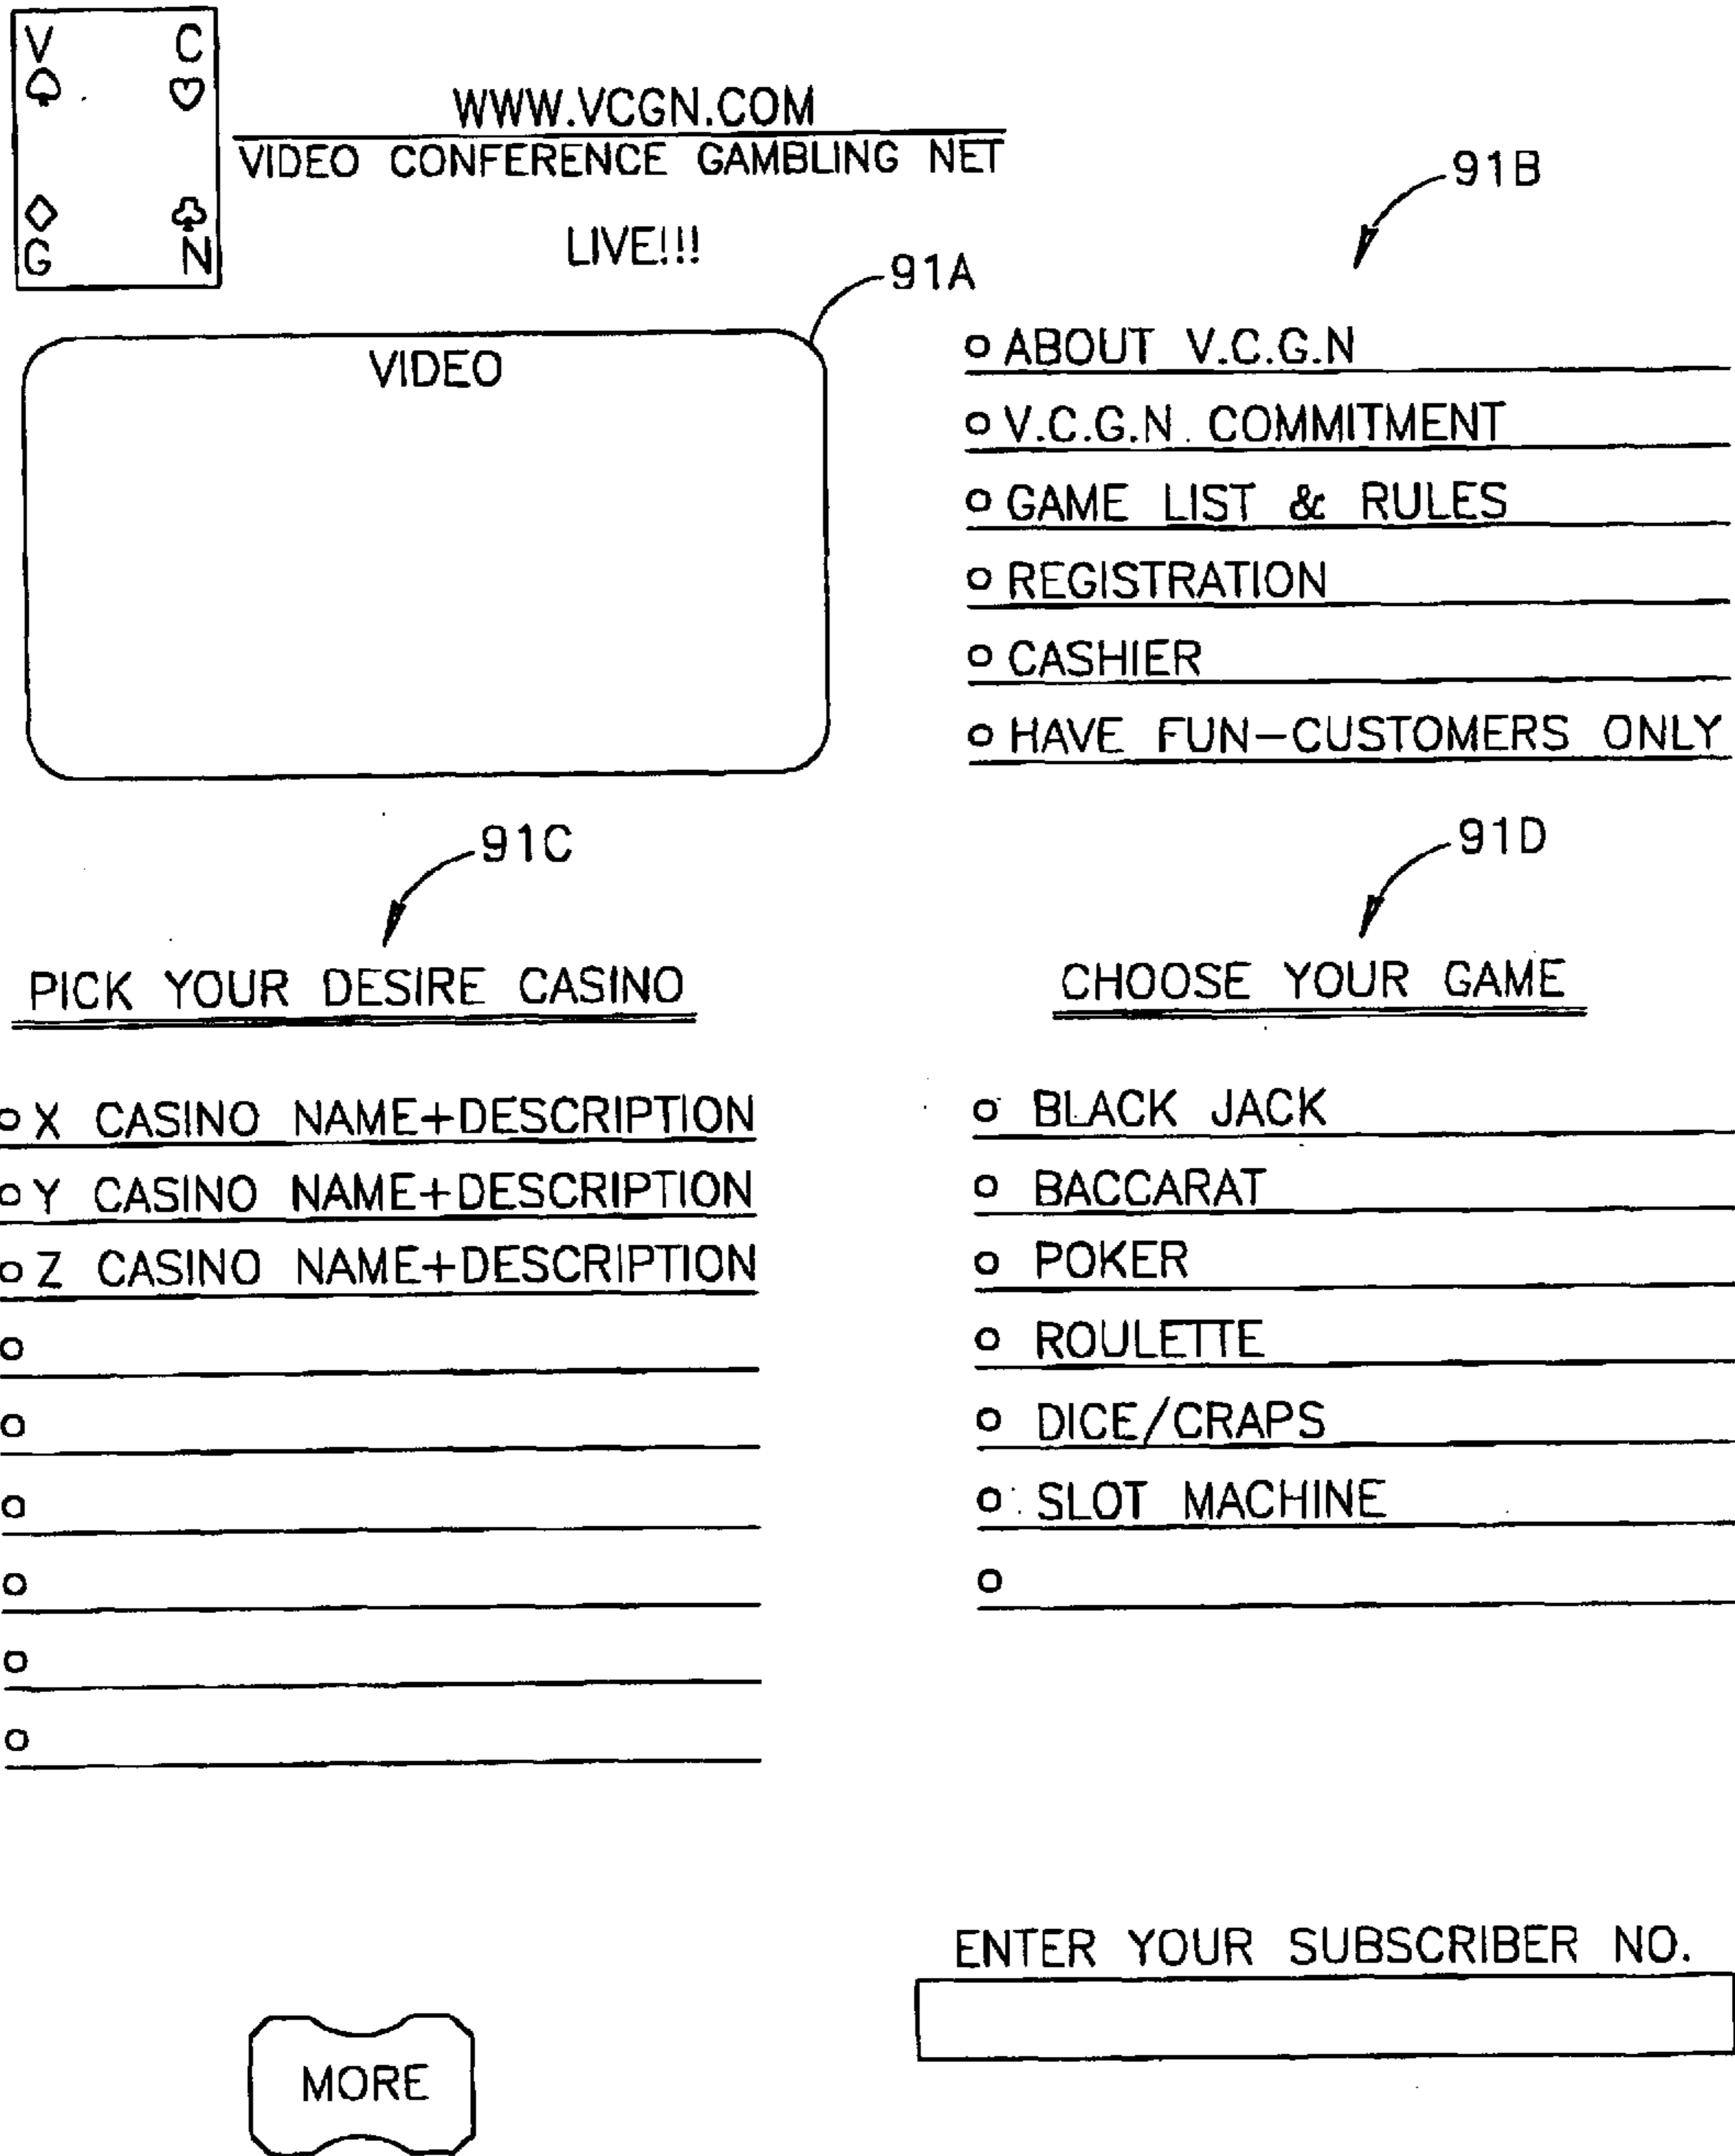 V C
G N
WWW.VCGN.COM
VIDEO CONFERENCE GAMBLING NET
LIVE!!!
91A
VIDEO
91B
ABOUT V.C.G.N
V.C.G.N. COMMITMENT
GAME LIST & RULES
REGISTRATION
CASHIER
HAVE FUN-CUSTOMERS ONLY
91C
PICK YOUR DESIRE CASINO
X CASINO NAME+DESCRIPTION
Y CASINO NAME+DESCRIPTION
Z CASINO NAME+DESCRIPTION
91D
CHOOSE YOUR GAME
BLACK JACK
BACCARAT
POKER
ROULETTE
DICE/CRAPS
SLOT MACHINE
ENTER YOUR SUBSCRIBER NO.
MORE